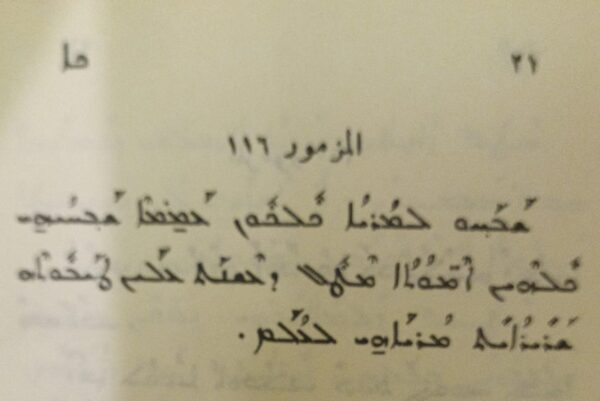 ٢١ ܟܐ
المزمور ١١٦
ܫܰܒܰܚܘ ܠܡܳܪܝܳܐ ܟܽܠܟܽܘܢ ܥܰܡ̈ܡܶܐ ܫܰܒܚܽܘܗܝ
ܟܽܠܗܶܝܢ ܐܶܡ̈ܘܳܬܳܐ ܡܶܛܽܠ ܕܥܶܫܢܰܬ ܥܠܰܝܢ ܛܰܝܒܽܘܬܶܗ
ܫܰܪܝܪܳܐܝܺܬ ܡܳܪܝܳܐ ܗ̱ܘ ܠܥܳܠܰܡ .